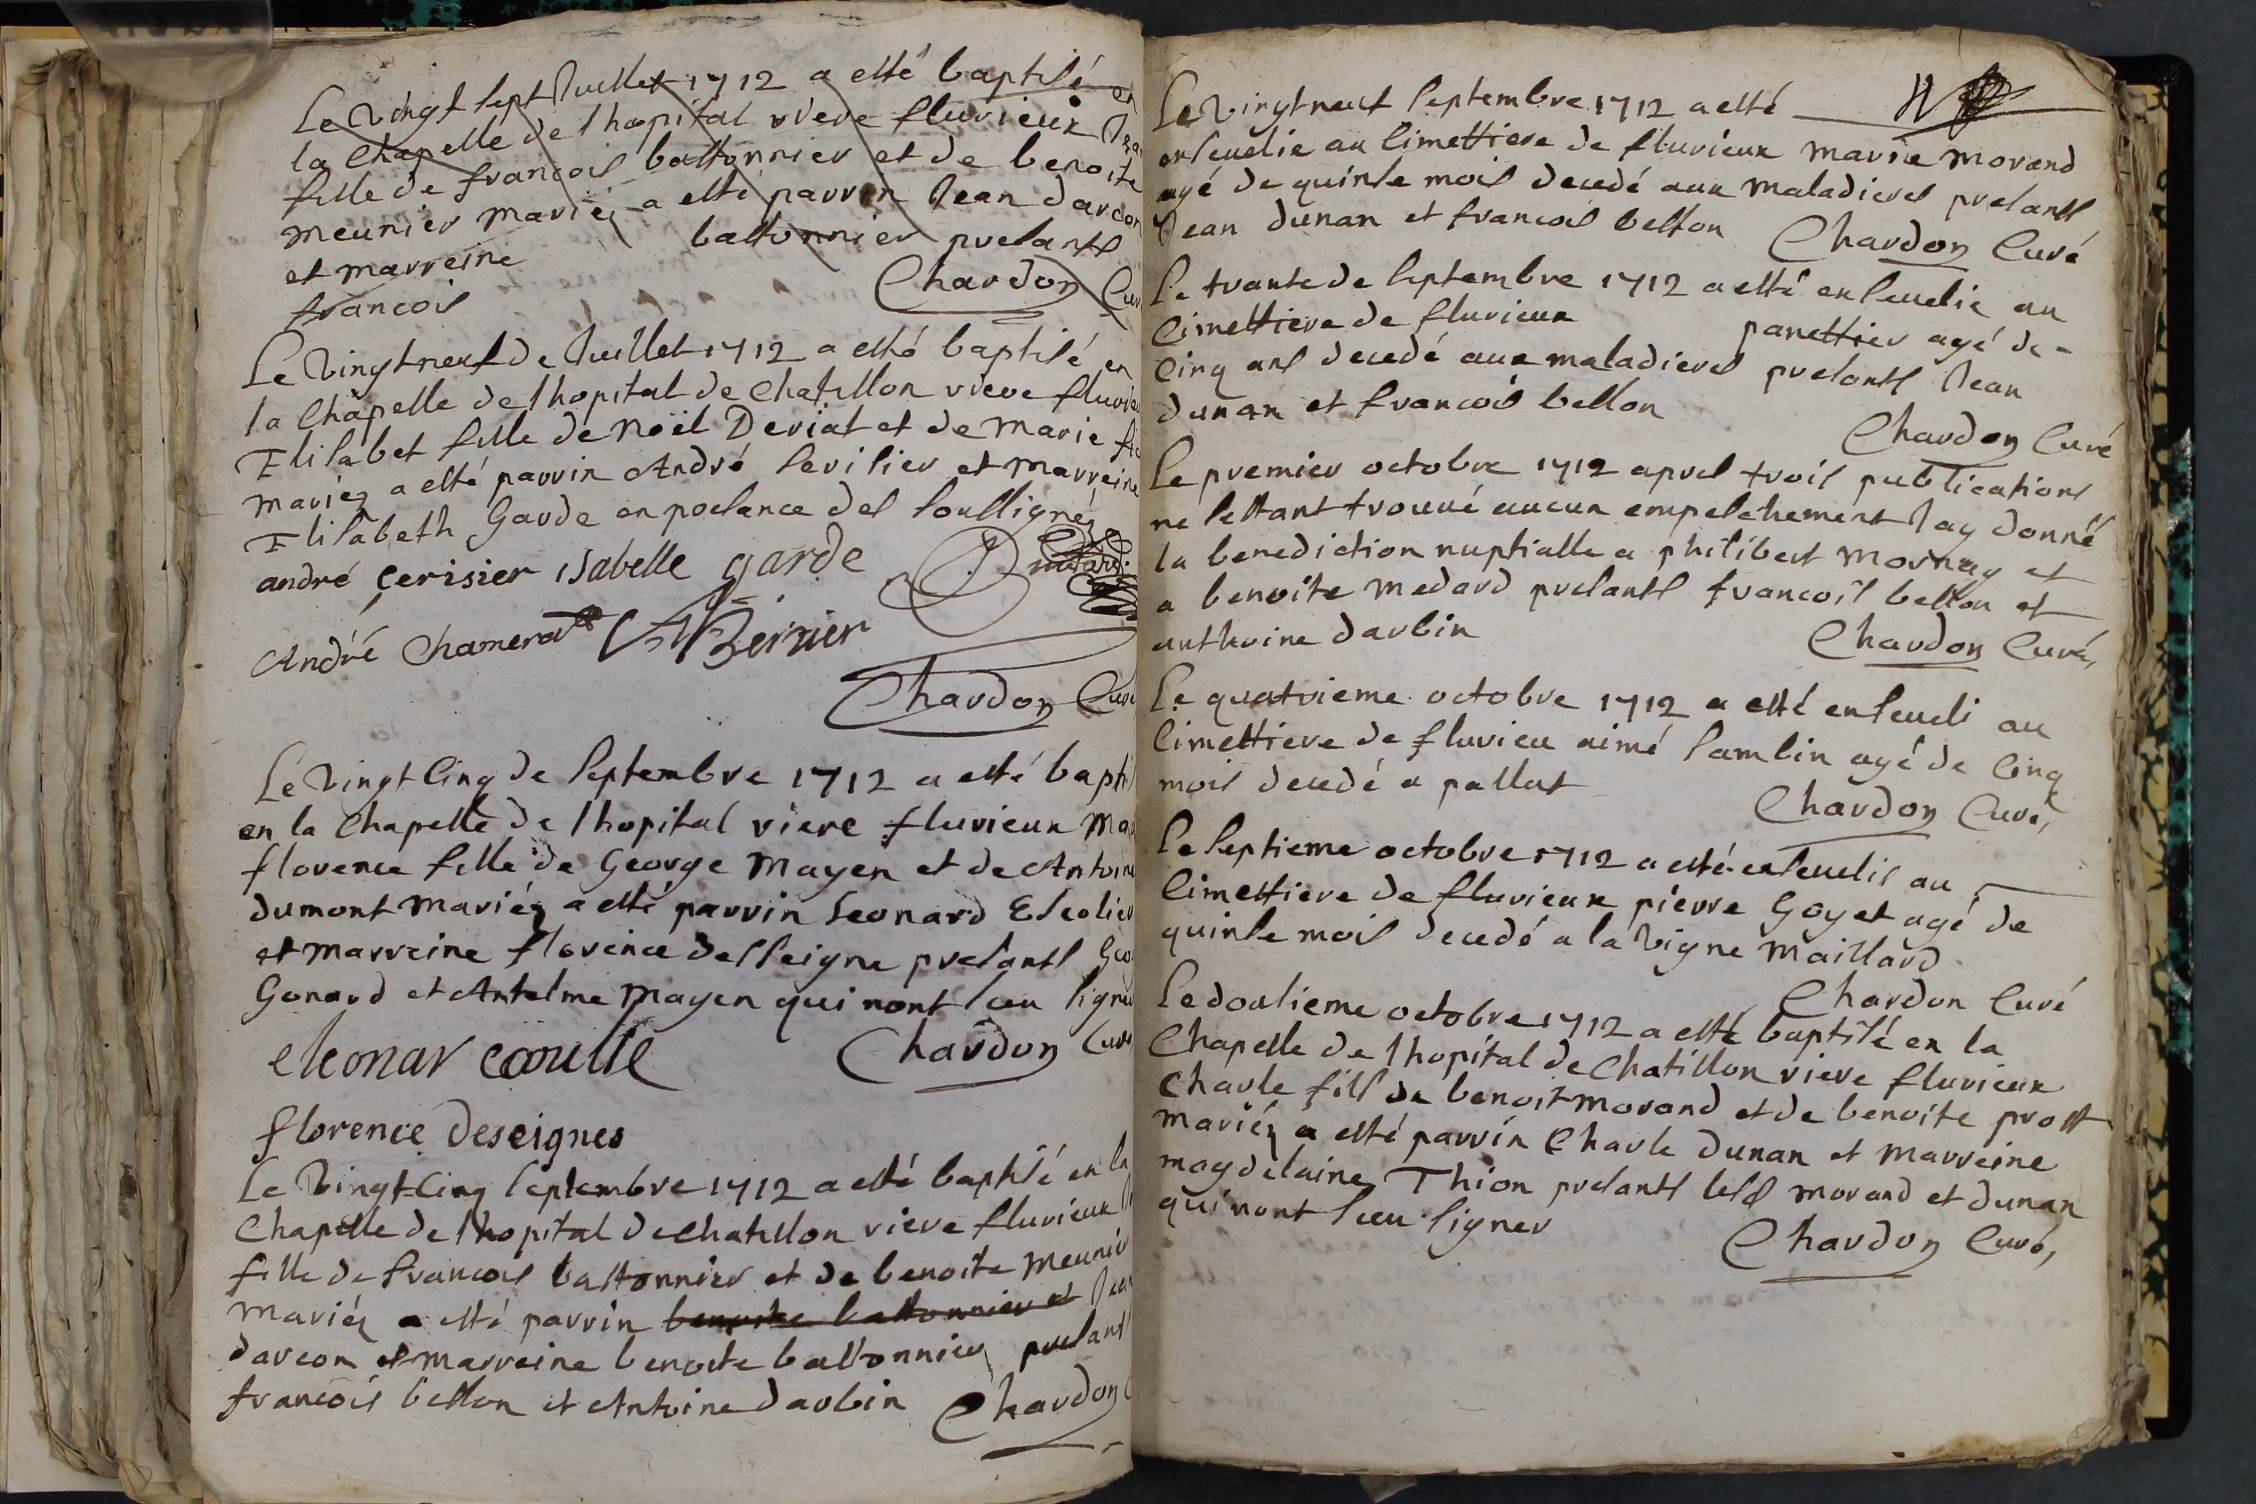 Le vingt sept Juillet 1712 a esté baptisé en
la Chapelle de lhopital riere fluvieux
fille de francois bastonnier et de benoite
meunier mariéz a esté parrin Jean darcon
et marreine bastonnier presants
francois Chardon Cur
Le vingt neuf de Juillet 1712 a esté baptisé en
la Chapelle de lhopital de Chatillon riere fluvie
Elisabet fille de Noël Deriat et de Marie
mariéz a esté parrin André serisier et marreine
Elisabeth Garde en presence des soussignéz
andré Çerisier isabelle garde
André Chamerat Bernier
Chardon Curé
Le vingt cinq de septembre 1712 a esté bapti
en la Chapelle de lhopital riere fluvieux Ma
florence fille de George Mayen et de Antoine
dumont mariéz a esté parrin Leonard Escolier
et marreine florence desseigne presants Geo
Gonard et Antelme Mayen qui nont sceu signer
Chardon Curé
florence deseignes
Le vingt-cinq septembre 1712 a esté baptisé en la
Chapelle de lhopital de Chatillon riere fluvieux
fille de francois bastonnier et de benoite meunier
mariéz a esté parrin benoite bastonnier et Jean
darcon et marreine benoite bastonnier presants
francois bellon et Antoine darbin Chardon
Le vingtneuf septembre 1712 a esté
ensevelie au simettiere de fluvieux marie morand
agé de quinse mois decedé aux maladieres presants
Jean dunan et francois bellon Chardon Curé
Le trante de septembre 1712 a esté ensevelie au
cimettiere de fluvieux panettier agé de
cinq ans decedé aux maladieres presants Jean
dunan et francois bellon Chardon Curé
Le premier octobre 1712 apres trois publications
ne sestant trouvé aucun empeschement Jay donné
la benediction nuptialle a philibert mornay et
a benoite medard presants francois bellon et
anthoine darbin Chardon Curé,
Le quatrieme octobre 1712 a esté enseveli au
simettiere de fluvieu aimé sambin agé de cinq
mois decedé a passat
Chardon Curé,
Le septieme octobre 1712 a esté ensevelis au
simettiere de fluvieux pierre Goyet agé de
quinse mois decedé a la vigne maillard
Chardon Curé
Le dousieme octobre 1712 a esté baptisé en la
Chapelle de lhopital de Chatillon riere fluvieux
Charle fils de benoit morand et de benoite prost
mariéz a esté parrin Charle dunan et marreine
magdelaine Thion presants lesd morand et dunan
qui nont sceu signer
Chardon Curé,